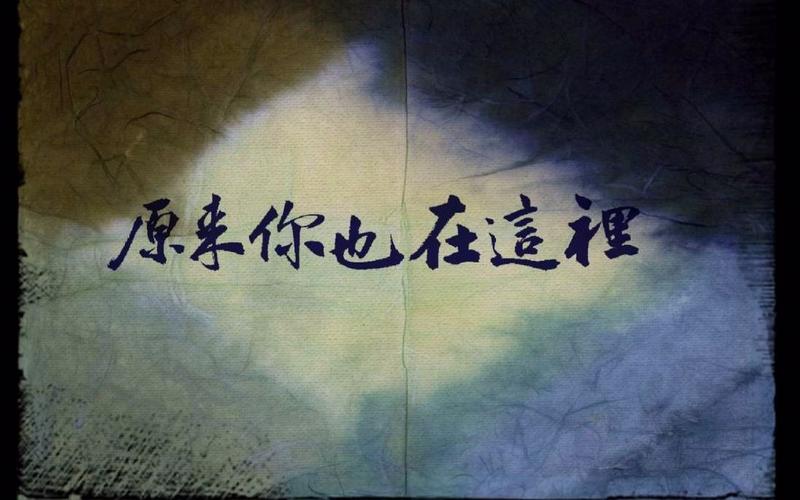 原来你也在這裡